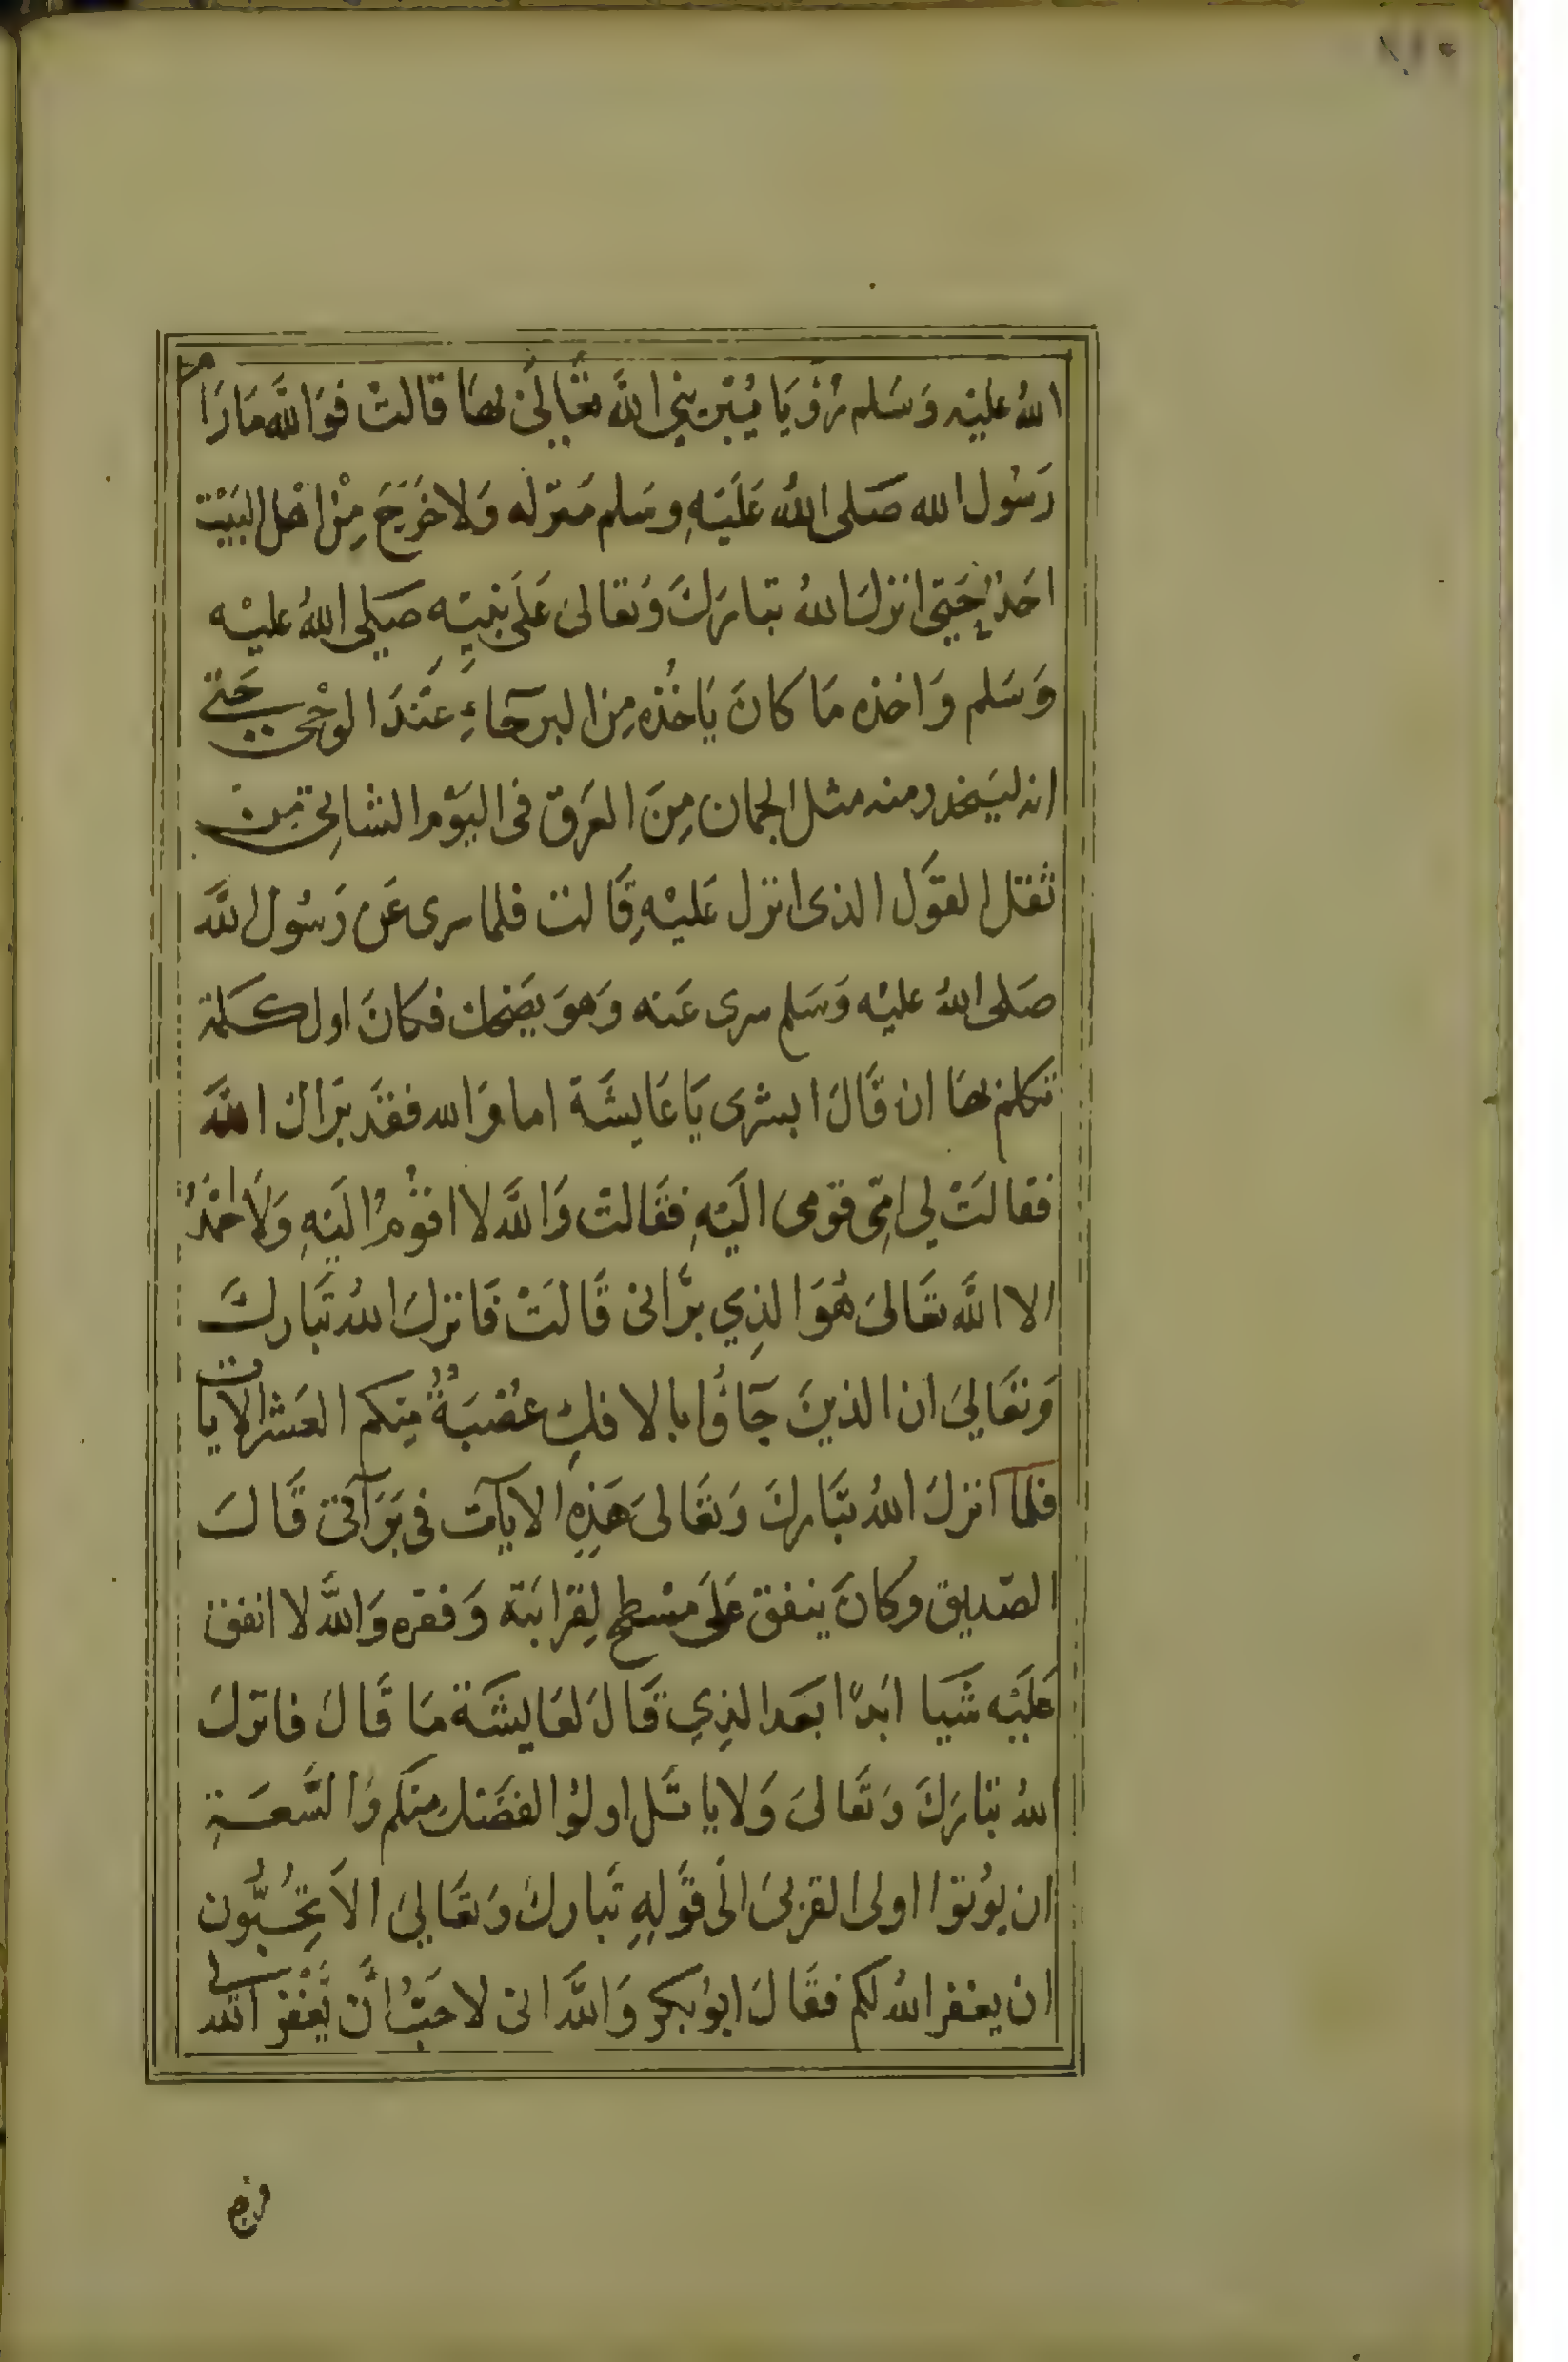 الله عليه وَسَلم رُؤيَا يُبَرِّيني اللهَّ تعَالىٰ بهَا قالتْ فوَاللهَّ مَارَام
رَسُول الله صَلى اللهُ عَلَيْهِ وسَلم مَنزله وَلا خَرَجَ مِنْ اهْل البَيْت
احَد حَتى انزلَ اللهُ تبَارَكَ وَتعَالىَ عَلَى نبيّهِ صَلى اللهُ عليْه
وَسَلم وَاخذه مَا كانَ يَاخُذه مِن البرحَاءِ عَنَدَ الوَحْى حَتى
انه ليَنحدر منه مثل الجمان مِنَ العَرَق فى اليَوْم الشاتِى مِن
ثقتل القوَل الذى انزل عَليْهِ قَالت فلما سرى عَن رَسُول اللهَّ
صَلى اللهُ عليْه وَسَلم سرى عَنه وَهوَ يضحك فكانَ اول كلمة
تكلم بهَا ان قَالَ ابشرى يَا عَايشَة اما وَالله فقَد بَراك اللهَّ
فقالَتْ لي امِّى قومى اليَهِ فقَالتْ وَاللهَّ لا اقوُمُ اليَهِ وَلاَ احْمَدُ
الا اللهَّ تعَالىَ هُوَ الذِي برَّانى قَالَتْ فَانزلَ اللهُ تَبَاركَ
وَتعَاليَ ان الذينَ جَآؤُا بالافكِ عُصْبَةٌ مِنكم العَشر الايات
فلمآ انزلَ اللهُ تبَّاركَ وَتعَالىَ هَذِهِ الايآت فى بَرَآتى قَالَ
الصّديق وكانَ ينفق عَلَى مسْطح لِقرابَتة وَفقره وَاللهَّ لا انفق
عَليَه شَيا ابَدًا بَعَد الذِي قَالَ لعَايشَة مَا قَالَ فانزلَ
اللهُ تبَارَكَ وَتَعَالىَ وَلا ياتَل اولوُا الفضَل منكم وَالسَّعَةِ
ان يؤُتوا اولى القربىَ الَى قَولِهِ تَبَاركَ وَتعَاليَ الاَ تحِبُّون
ان يغفر اللهُ لكم فقَالَ ابوُبكر وَاللهَّ انى لاحَبُ انَّ يَّغْفر الله لى
فرجع